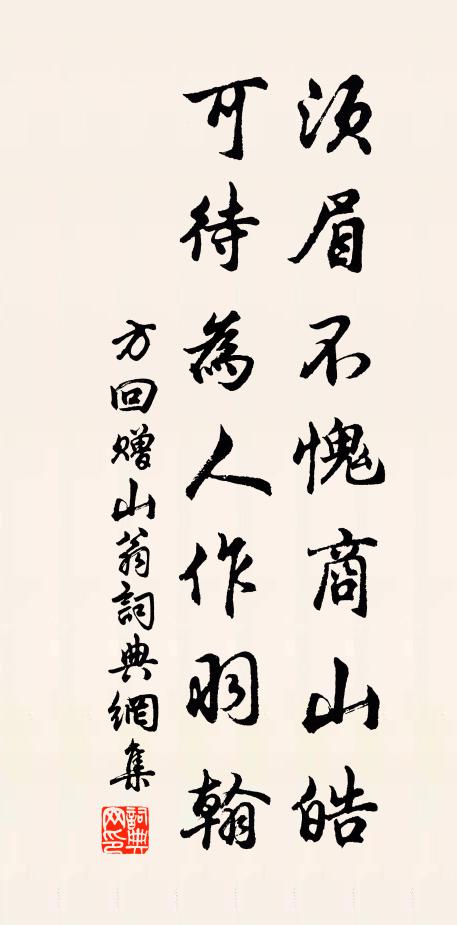 須眉不愧商山皓
可待為人作羽翰
方回贈山翁詞典網集
詞典網印